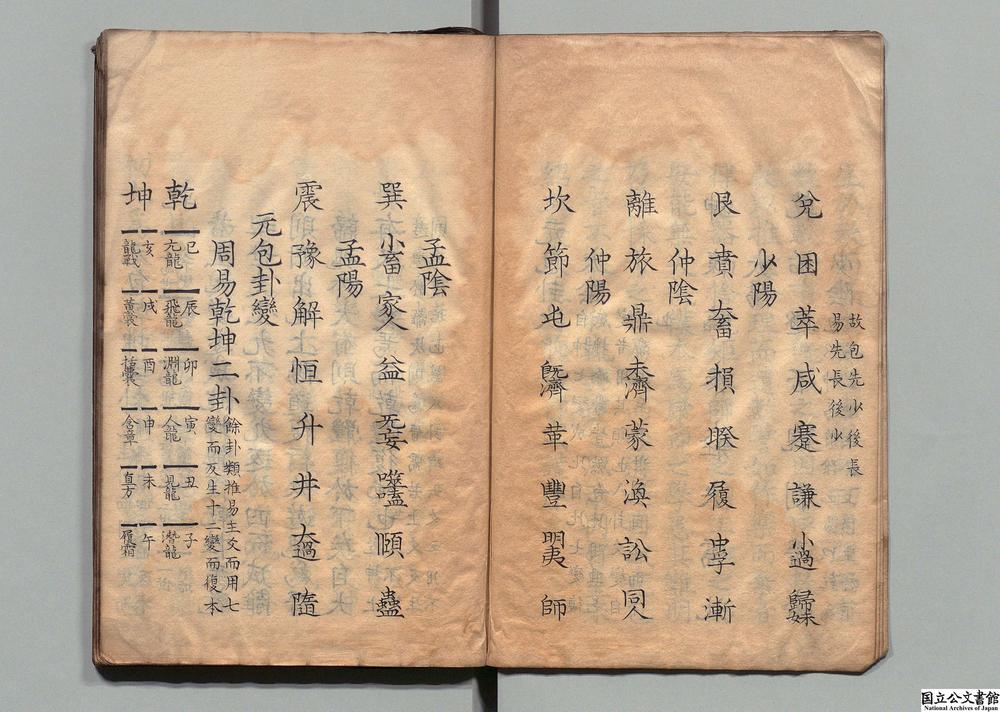 故包先少後長
易先長後少
兌 困 萃 咸 蹇 謙 小過 歸妹
少陽
艮 賁 大畜 損 睽 履 中孚 漸
仲陰
離 旅 鼎 未濟 蒙 渙 訟 同人
仲陽
坎 節 屯 既濟 革 豐 明夷 師
孟陰
巽 小畜 家人 益 无妄 噬嗑 頤 蠱
孟陽
震 豫 解 恒 升 井 大過 隨
元包卦變
周易乾坤二卦
餘卦類推易主爻而用七
變而反生十二變而復本
乾
巳 辰 卯 寅 丑 子
亢龍 飛龍 淵龍 人龍 見龍 潛龍
坤
亥 戌 酉 申 未 午
龍戰 黃裳 括囊 含章 直方 履霜
国立公文書館
National Archives of Japan